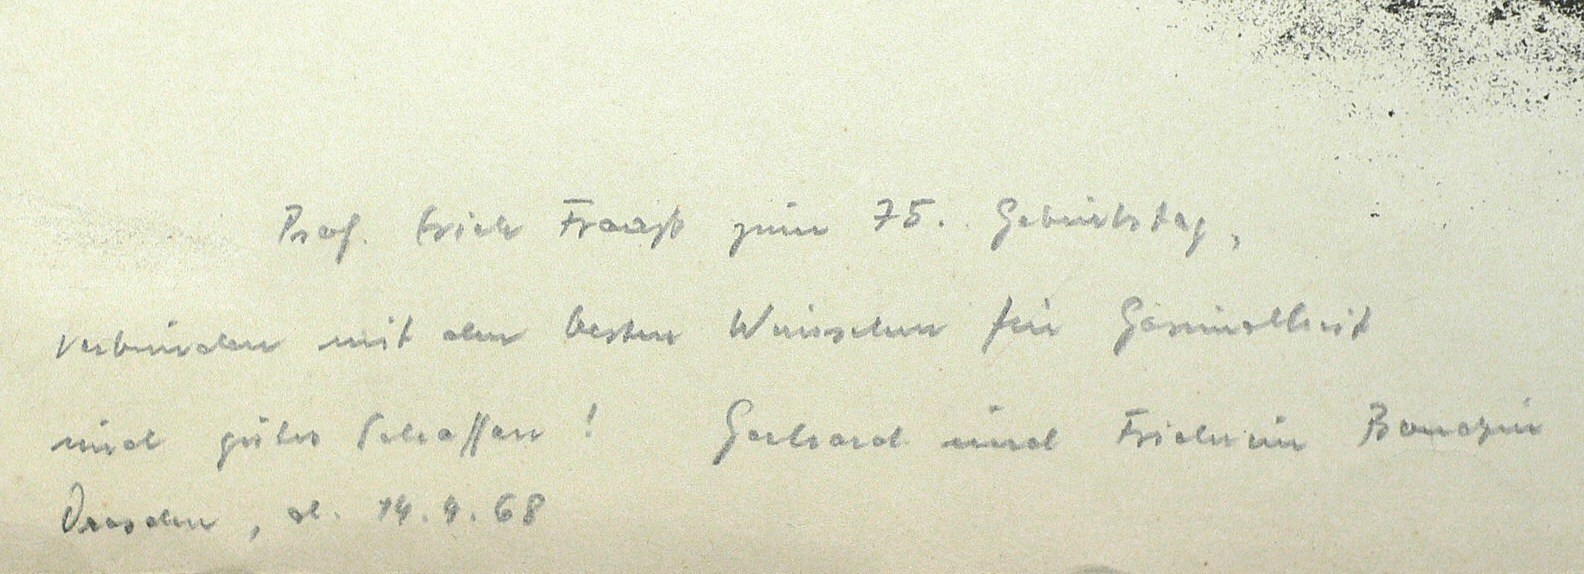 Prof. Erich Fraaß zum 75. Geburtstag,
verbunden mit den besten Wünschen für Gesundheit
und gutes Schaffen! Gerhard und Friedrun Bondzin
Dresden, d. 14.4.68